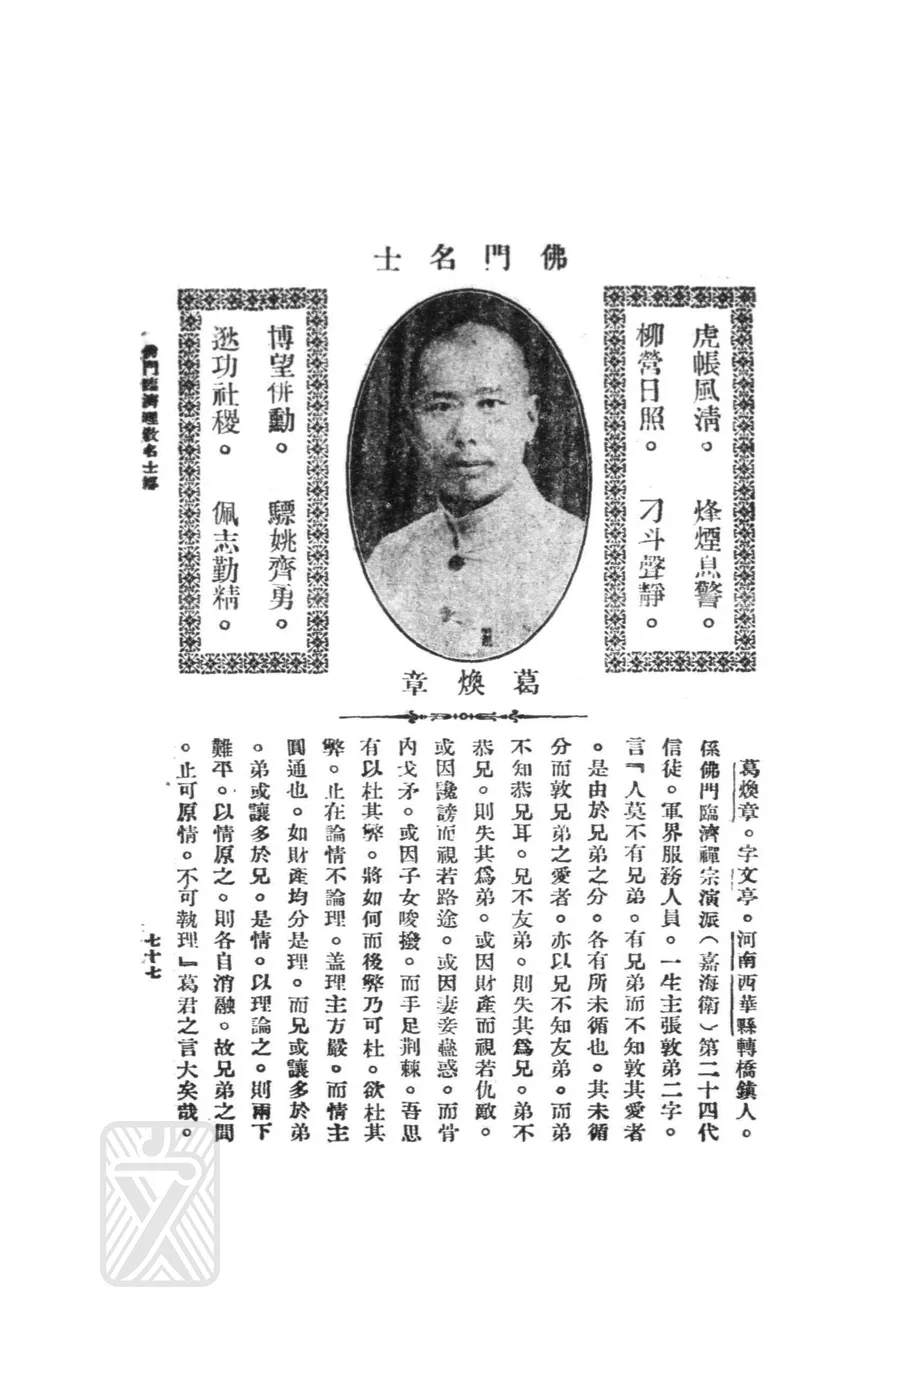 佛門名士
虎帳風淸。烽煙息警。
柳營日照。刁斗聲靜。
博望併勳。驃姚齊勇。
逖功社稷。佩志勤精。
葛煥章
葛煥章。字文亭。河南西華縣轉橋鎭人。
係佛門臨濟禪宗演派(嘉海衛)第二十四代
信徒。軍界服務人員。一生主張敦弟二字。
言『人莫不有兄弟。有兄弟而不知敦其愛者
。是由於兄弟之分。各有所未循也。其未循
分而敦兄弟之愛者。亦以兄不知友弟。而弟
不知恭兄耳。兄不友弟。則失其爲兄。弟不
恭兄。則失其爲弟。或因財產而視若仇敵。
或因讒謗而視若路途。或因妻妾蠱惑。而骨
內戈矛。或因子女唆撥。而手足荆棘。吾思
有以杜其弊。將如何而後弊乃可杜。欲杜其
弊。止在論情不論理。盖理主方嚴。而情主
圓通也。如財產均分是理。而兄或讓多於弟
。弟或讓多於兄。是情。以理論之。則兩下
難平。以情原之。則各自消融。故兄弟之間
。止可原情。不可執理』葛君之言大矣哉。
門臨濟理敎名士
七十七